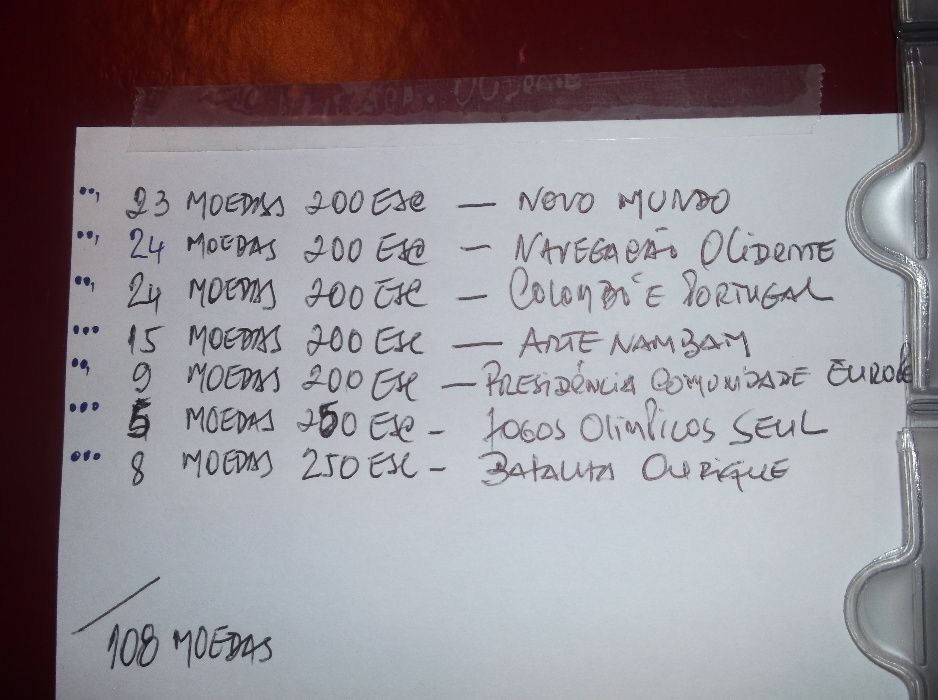 23 MOEDAS 200 ESC — NOVO MUNDO
24 MOEDAS 200 ESC — NAVEGAÇÃO OCIDENTE
24 MOEDAS 200 ESC — COLOMBO E PORTUGAL
15 MOEDAS 200 ESC — ARTE NAMBAM
9 MOEDAS 200 ESC — PRESIDÊNCIA COMUNIDADE EUROPE
5 MOEDAS 250 ESC - JOGOS OLIMPICOS SEUL
8 MOEDAS 250 ESC - BATALHA OURIQUE
108 MOEDAS